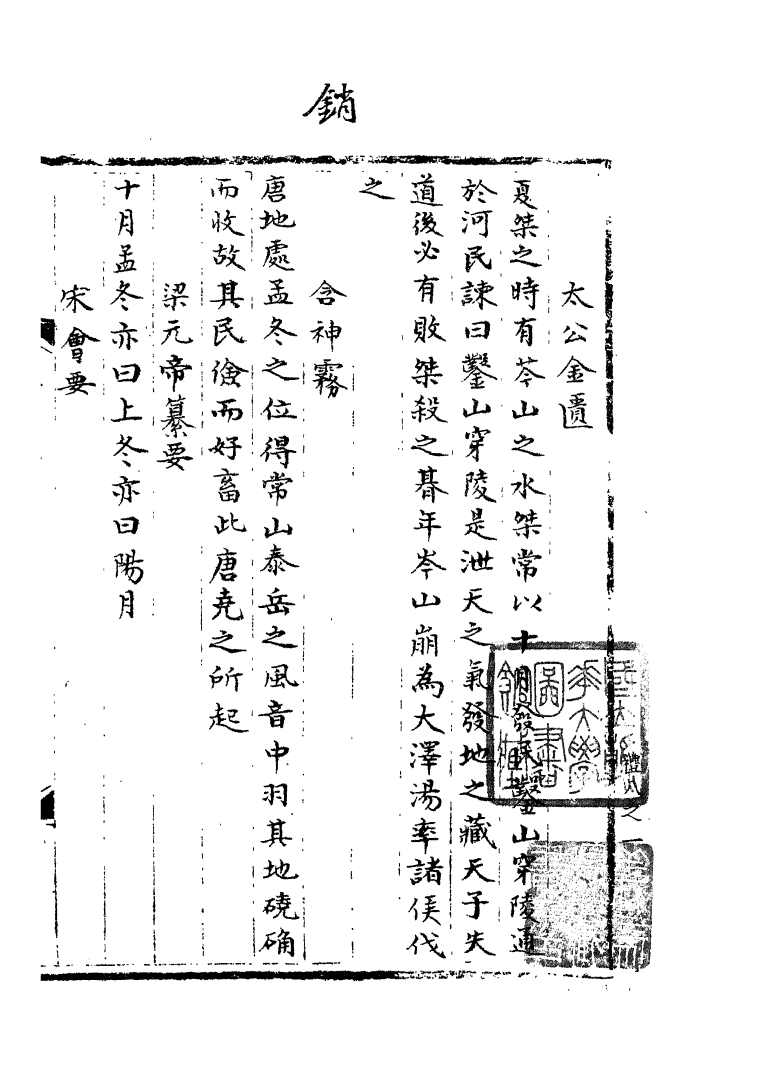 銷
太公金匱
夏桀之時有芩山之水桀常以十月發民鑿山穿陵通
於河民諫曰鑿山穿陵是泄天之氣發地之藏天子失
道後必有敗桀殺之朞年岑山崩為大澤湯率諸侯伐
之
含神霧
唐地處孟冬之位得常山泰岳之風音中羽其地磽确
而收故其民儉而好畜此唐堯之所起
梁元帝纂要
十月孟冬亦曰上冬亦曰陽月
宋會要